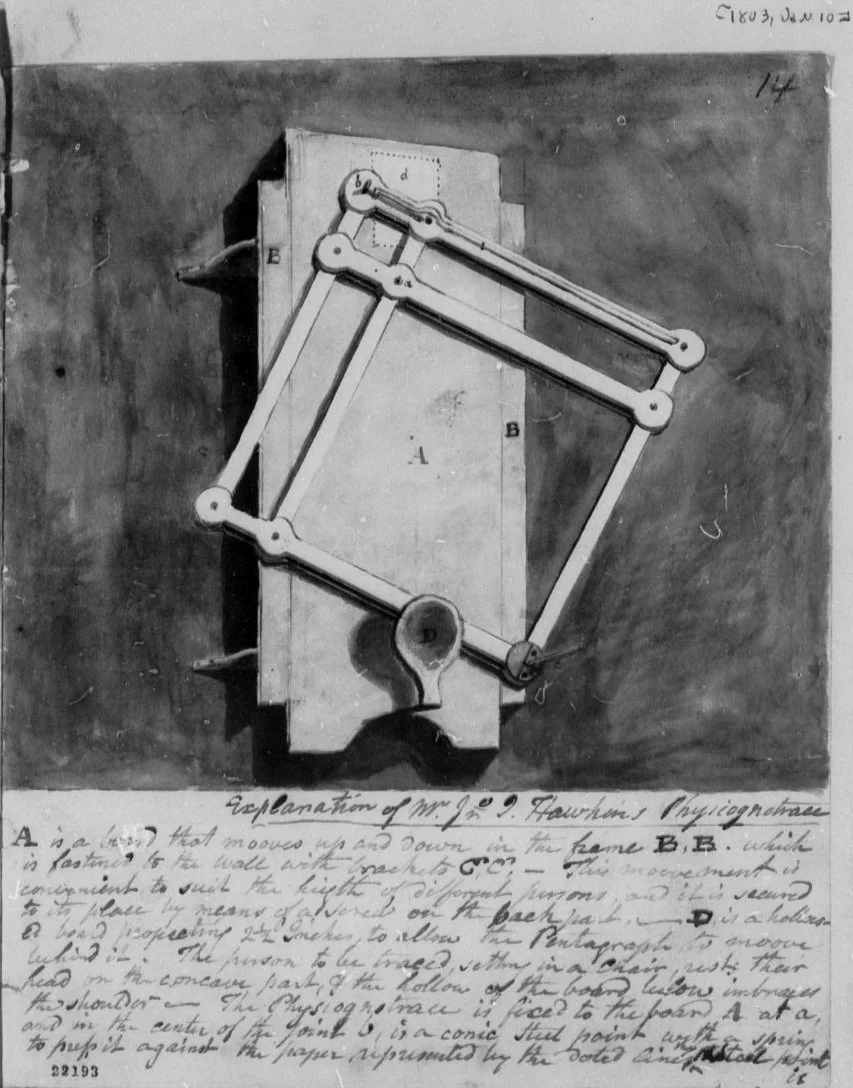 [1803, Jan. 10]
14
b
d
B
a
B
A
D
Explanation of Mr. Jno. I. Hawkins Physiognotrace
A is a bord that mooves up and down in the frame B,B. which
is fastened to the wall with brackets C,C. — This moovement is
convenient to suit the higth of different persons, and it is secured
to its place by means of a screw on the back part, — D, is a hollow-
ed board projecting 2½ Inches, to allow the Pentagraph to moove
behind it. The person to be traced, setting in a chair, rests their
head on the concave part, & the hollow of the board below imbraces
the shoulder — The Physiognotrace is fixed to the board A at a,
and in the center of the joint b, is a conic steel point with a spring
to press it against the paper, represented by the doted lines, steel point
is
22193